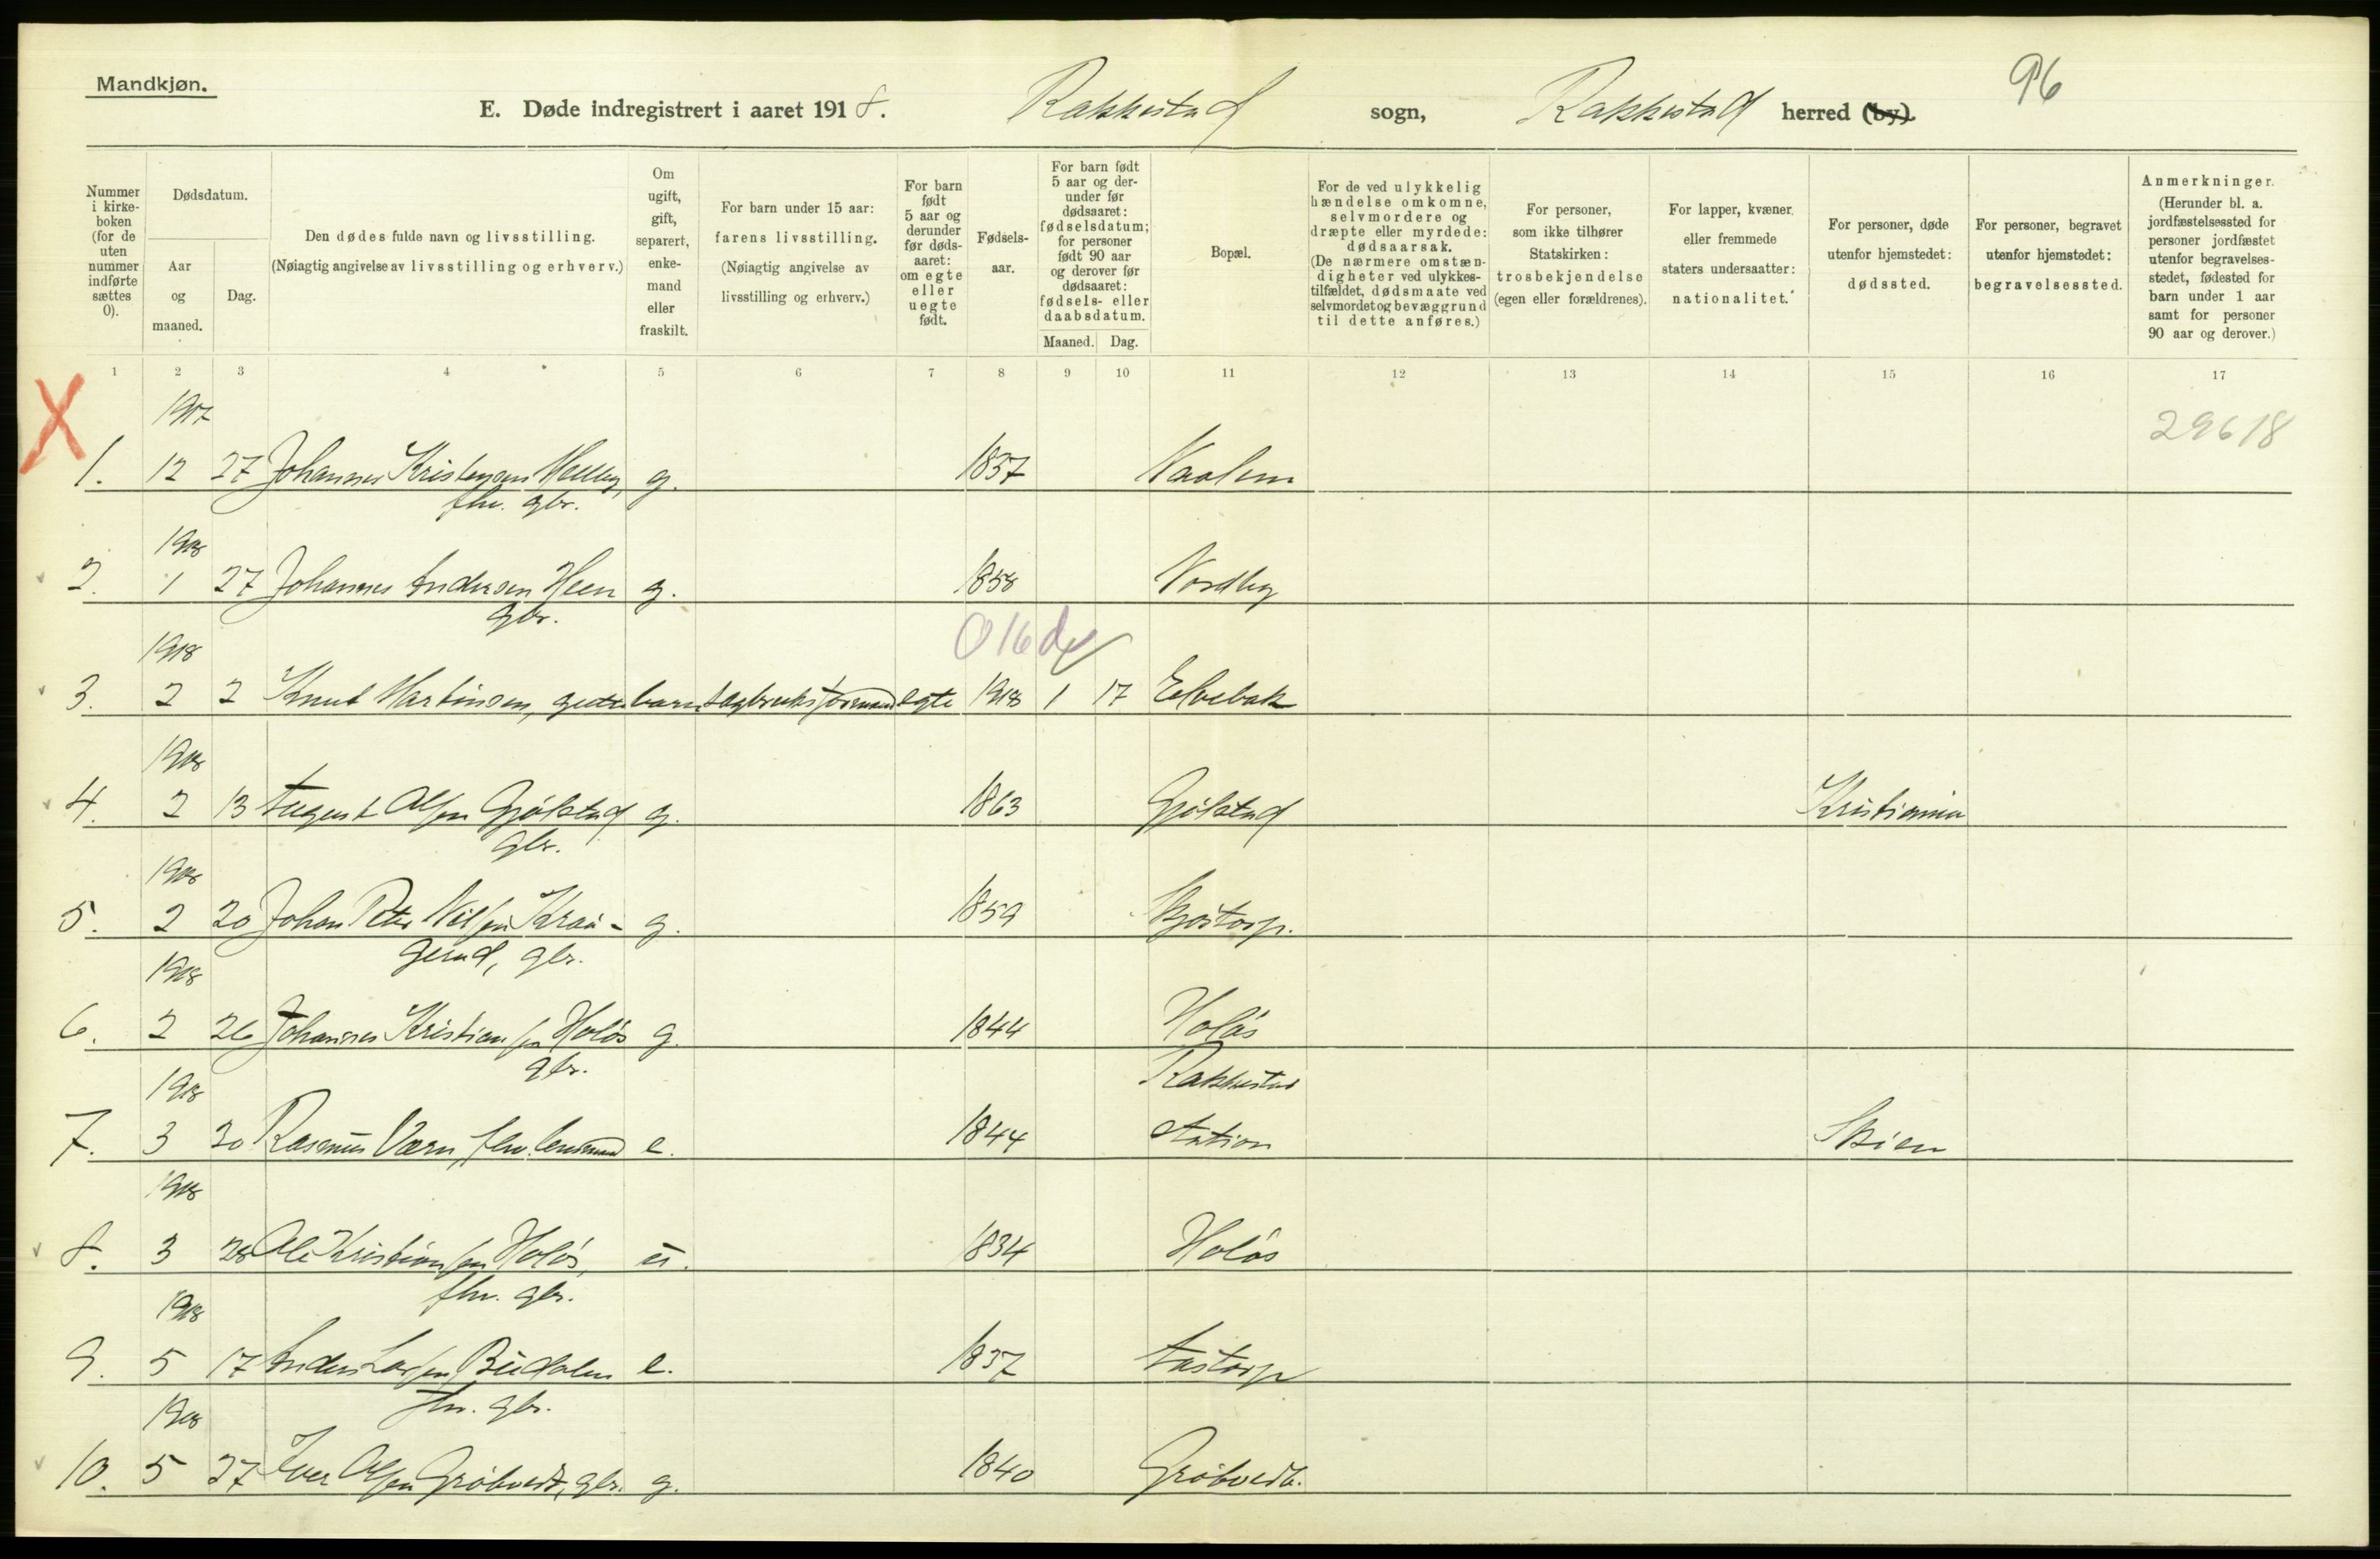 Mandkjøn.
96
E. Døde indregistrert i aaret 1918. Rakkestad sogn, Rakkestad herred (by)
Nummer i kirkeboken (for de uten nummer indførte sættes 0).
Dødsdatum.
Aar og maaned.
Dag.
Den dødes fulde navn og livsstilling.
(Nøiagtig angivelse av livsstilling og erhverv.)
Om ugift, gift, separert, enkemand eller fraskilt.
For barn under 15 aar: farens livsstilling. (Nøiagtig angivelse av livsstilling og erhverv.)
For barn født 5 aar og derunder før dødsaaret: om egte eller uegte født.
Fødselsaar.
For barn født 5 aar og derunder før dødsaaret: fødselsdatum; for personer født 90 aar og derover før dødsaaret: fødsels- eller daabsdatum.
Maaned. Dag.
Bopæl.
For de ved ulykkelig hændelse omkomne, selvmordere og dræpte eller myrdede: dødsaarsak. (De nærmere omstændigheter ved ulykkestilfældet, dødsmaate ved selvmordet og bevæggrund til dette anføres.)
For personer, som ikke tilhører Statskirken: trosbekjendelse (egen eller forældrenes).
For lapper, kvæner eller fremmede staters undersaatter: nationalitet.
For personer, døde utenfor hjemstedet: dødssted.
For personer, begravet utenfor hjemstedet: begravelsessted.
Anmerkninger. (Herunder bl. a. jordfæstelsessted for personer jordfæstet utenfor begravelsesstedet, fødested for barn under 1 aar samt for personer 90 aar og derover.)
1 2 3 4 5 6 7 8 9 10 11 12 13 14 15 16 17
X
1917
29618
1. 12 27 Johannes Kristensen g. 1837
fhv. gbr.
1918
2. 1 27 Johannes Andersen Heen g. 1858 Nordby
gbr.
0 16 d
1918
3. 2 2 Knut Martinsen, gutebarn sagbruksformand egte 1918 1 17 Elvebak
1918
4. 2 13 August Olsen Gjølstad g. 1863 Gjølstad Kristiania
gbr.
1918
5. 2 20 Johan Peter Nilsen Kraa- g. 1859
gerud, gbr.
1918
6. 2 26 Johannes Kristiansen Holøs g. 1844 Holøs
gbr.
Rakkestad
1918
7. 3 30 Rasmus Værn, fhv. lensmand e. 1844 station Skien
1918
8. 3 28 Ole Kristiansen Holøs, u. 1834 Holøs
fhv. gbr.
1918
9. 5 17 Anders Larsen Budalen e. 1837 Aastorp
fhv. gbr.
1918
10. 5 27 Iver Olsen Grøtvedt, gbr. g. 1840 Grøtvedt.